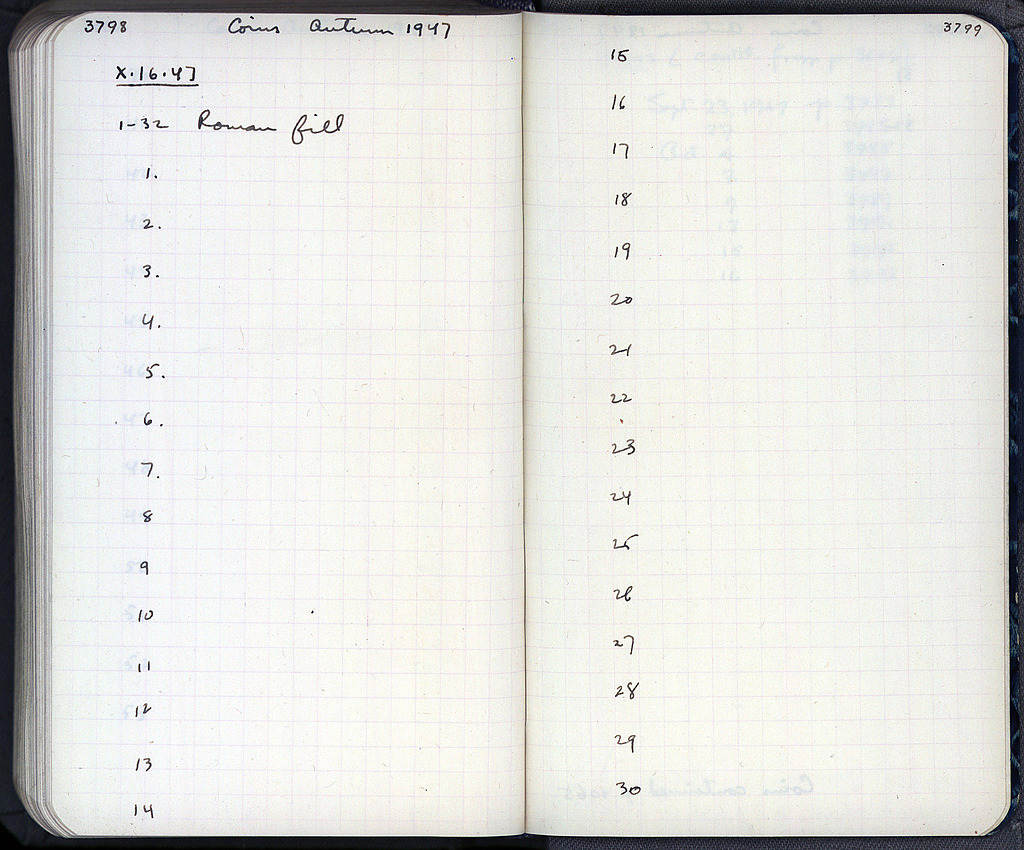 3798 Coins Autumn 1947
X.16.47
1-32 Roman fill
1.
2.
3.
4.
5.
6.
7.
8
9
10
11
12
13
14
3799
15
16
17
18
19
20
21
22
23
24
25
26
27
28
29
30